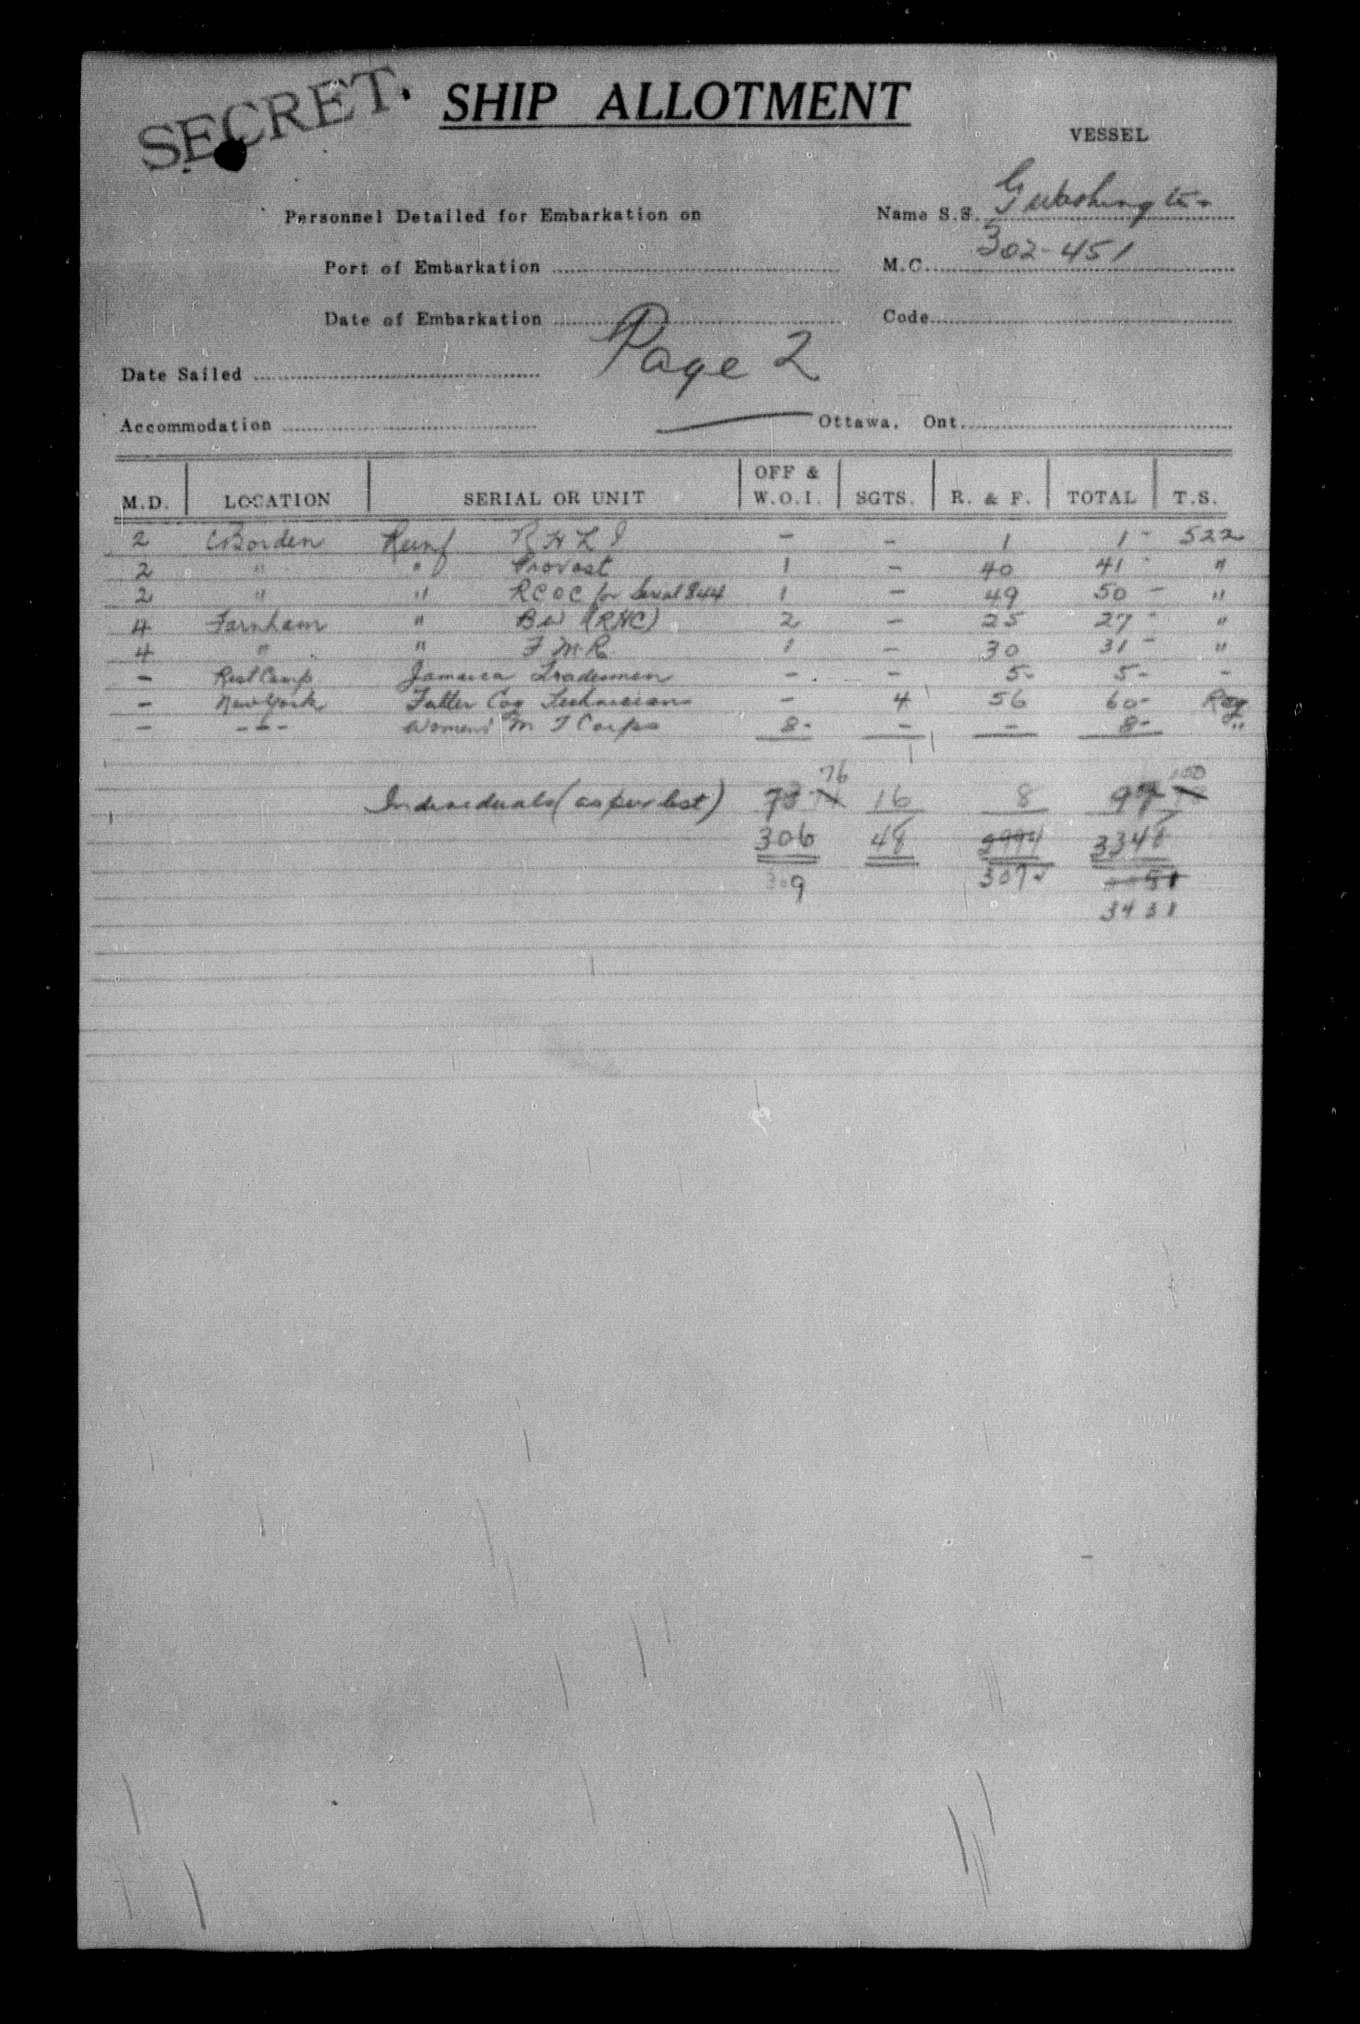 SECRET.
SHIP ALLOTMENT
VESSEL
Personnel Detailed for Embarkation on
Name S.S. G Washington
Port of Embarkation
M.C. 302-451
Date of Embarkation
Code
Page 2
Date Sailed
Accommodation
Ottawa, Ont.
M.D. LOCATION SERIAL OR UNIT OFF & W.O.I. SGTS. R. & F. TOTAL T.S.
2 C Borden Reinf R H L I - - 1 1 - 522
2 " " Provost 1 - 40 41 - "
2 " " RCOC for Serial 844 1 - 49 50 - "
4 Farnham " BW (RHC) 2 - 25 27 - "
4 " " F M R 1 - 30 31 - "
- Rest Camp Jamaica Tradesmen - - 5 - 5 - -
- New York Civ Technicians - 4 56 60 -
- - " - Womens M T Corps 8 - - - 8 - "
76 100
Individuals (as per list) 73 16 8 97
306 48 2994 3348
309 307
3431